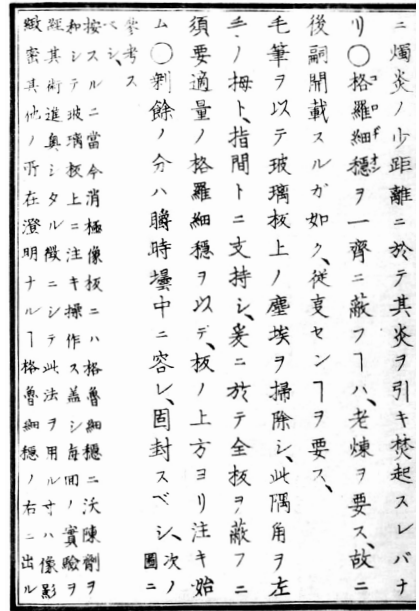 ニ燭炎ノ少距離ニ於テ其炎ヲ引キ焚起スレバナ
リ〇格羅細穏コロヂオンヲ一齊ニ蔽フヿハ、老煉ヲ要ス、故ニ
後嗣開載スルガ如ク、従叓センヿヲ要ス、
毛筆ヲ以テ玻璃板上ノ塵埃ヲ掃除シ、此隅角ヲ左
手ノ拇ト、指間トニ支持シ、爰ニ於テ全板ヲ蔽フニ
須要適量ノ格羅細穏ヲ以デ、板ノ上方ヨリ注キ始
ム〇剰餘ノ分ハ瞬時壜中ニ容レ、固封スベシ、次ノ圖ニ
參考スベシ、
按スルニ當今消極像板ニハ格魯細穏ニ沃陳劑ヲ
和シテ玻璃板上ニ注キ操作ス蓋シ毎間ノ實驗ヲ
經其術進奥シタル徴ニシテ此法ヲ用ル寸ハ像影
緻密其他ノ所在澄明ナルヿ格魯細穏ノ右ニ出ル